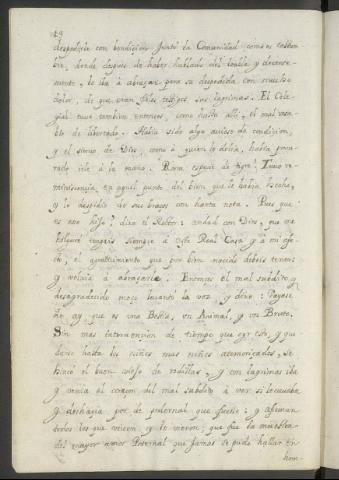 despedirle con bendicion. Juntó la Comunidad como es costum
bre, donde despues de haber hablado del
mente, le iba à abrazar para su despedida con mucho
dolor, de que eran fieles testigos sus lagrimas. El Cole
gial tuvo tambien entonces, como hasta allí, el mal
de libertado. Habia sido algo avieso de condicion,
y el siervo de Dios, como à quien le dolia, habia procu
rado irle à la mano. Rara especie de tigre! Tuvo re
miniscencia en aquel punto del bien que le habia hecho,
y le despidio de sus brazos con harta nota. Pues que
es eso hijo? dixo el Rector: andad con Dios, que me
holgaré tengais siempre à este Real Casa y a mi afe
cto, el agradecimiento que por bien nacido debeis tener;
y volvia à abrazarle. Entonces el mal subdito y
desagradecido mozo levantó la voz y dixo: Vayase
de ay que es una Bestia, un Animal, y un Bruto.
Sin mas intervencion de tiempo que oyr esto, y que
darse hasta los niños mas niños atemorizados, se
hincó el buen viejo de rodillas, y con lagrimas iba
y venia el corazon del mal subdito à ver si le cavaba
y deshacia por de pedernal que fuese: y afirman
todos los que vivieron y le vieron, que fue la muestra
del mayor amor Paternal que jamas se pudo hallar en
hom-